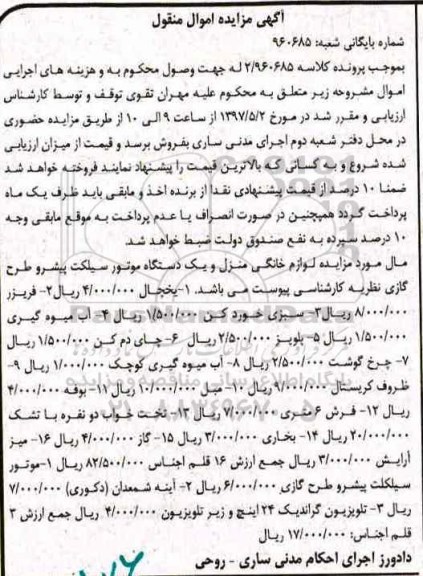 آگهی مزایده اموال منقول
شماره بایگانی شعبه: ۹۶۰۶۸۵
بموجب پرونده کلاسه ۲/۹۶۰۶۸۵ له جهت وصول محکوم به و هزینه های اجرایی
اموال مشروحه زیر متعلق به محکوم علیه مهران تقوی توقف و توسط کارشناس
ارزیابی و مقرر شد در مورخ ۱۳۹۷/۵/۲ از ساعت ۹ الی ۱۰ از طریق مزایده حضوری
در محل دفتر شعبه دوم اجرای مدنی ساری بفروش برسد و قیمت از میزان ارزیابی
شده شروع و به کسانی که بالاترین قیمت را پیشنهاد نمایند فروخته خواهد شد
ضمنا ۱۰ درصد از قیمت پیشنهادی نقدا از برنده اخذ و مابقی باید ظرف یک ماه
پرداخت گردد همچنین در صورت انصراف یا عدم پرداخت به موقع مابقی وجه
۱۰ درصد سپرده به نفع صندوق دولت ضبط خواهد شد.
مال مورد مزایده لوازم خانگی منزل و یک دستگاه موتور سیلکت پیشرو طرح
گازی نظریه کارشناسی پیوست می باشد. ۱-یخچال ۴/۰۰۰/۰۰۰ ریال ۲- فریزر
۸/۰۰۰/۰۰۰ ریال ۳- سبزی خورد کن ۱/۵۰۰/۰۰۰ ریال ۴- آب میوه گیری
۱/۵۰۰/۰۰۰ ریال ۵- بلویز ۲/۵۰۰/۰۰۰ ریال ۶- چای دم کن ۱/۵۰۰/۰۰۰ ریال
۷- چرخ گوشت ۲/۵۰۰/۰۰۰ ریال ۸- آب میوه گیری کوچک ۱/۰۰۰/۰۰۰ ریال ۹-
ظروف کریستال ۹/۰۰۰/۰۰۰ ریال ۱۰- مبل ۱۰/۰۰۰/۰۰۰ ریال ۱۱- بوفه ۴/۰۰۰/۰۰۰
ریال ۱۲- فرش ۶ متری ۷/۰۰۰/۰۰۰ ریال ۱۳- تخت خواب دو نفره با تشک
۲۰/۰۰۰/۰۰۰ ریال ۱۴- بخاری ۳/۰۰۰/۰۰۰ ریال ۱۵- گاز ۴/۰۰۰/۰۰۰ ریال ۱۶- میز
آرایش ۳/۰۰۰/۰۰۰ ریال جمع ارزش ۱۶ قلم اجناس ۸۲/۵۰۰/۰۰۰ ریال ۱-موتور
سیلکلت پیشرو طرح گازی ۶/۰۰۰/۰۰۰ ریال ۲- آینه شمعدان (دکوری) ۷/۰۰۰/۰۰۰
ریال ۳- تلویزیون گراندیک ۲۴ اینچ و زیر تلویزیون ۴/۰۰۰/۰۰۰ ریال جمع ارزش ۳
قلم اجناس: ۱۷/۰۰۰/۰۰۰ ریال
دادورز اجرای احکام مدنی ساری - روحی